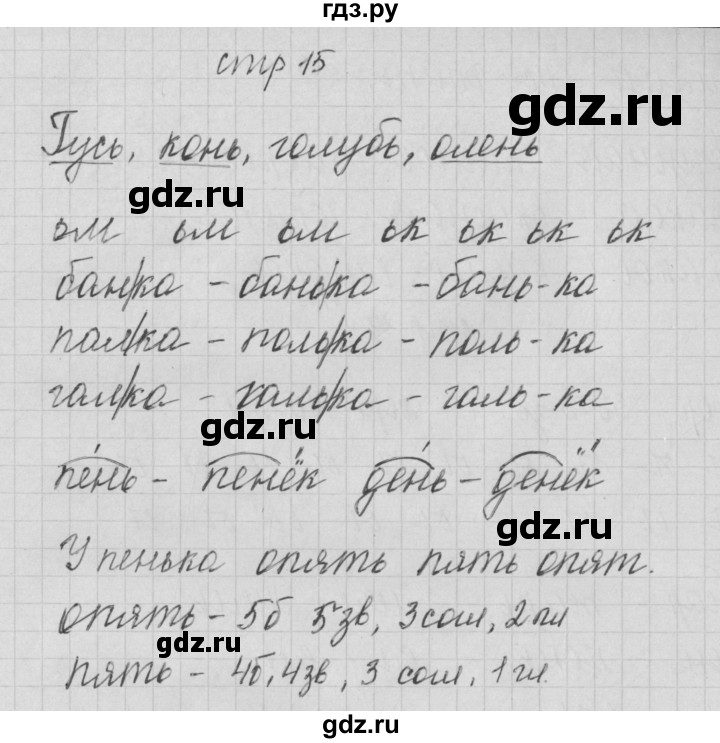 гдз.ру
стр 15
gdz.ru
Гусь, конь, голубь, олень
gdz.ru
ьм ьм ьм ьк ьк ьк ьк
бан/ка - бань/ка - бань-ка
пал/ка - поль/ка - поль-ка
гал/ка - галь/ка - галь-ка
gdz.ru
пе́нь - пенёк де́нь - денёк
gdz.ru
У пенька опять пять опят.
опять - 5б 5зв, 3сог, 2гл
gdz.ru
пять - 4б, 4зв, 3 сог, 1гл.
gdz.ru